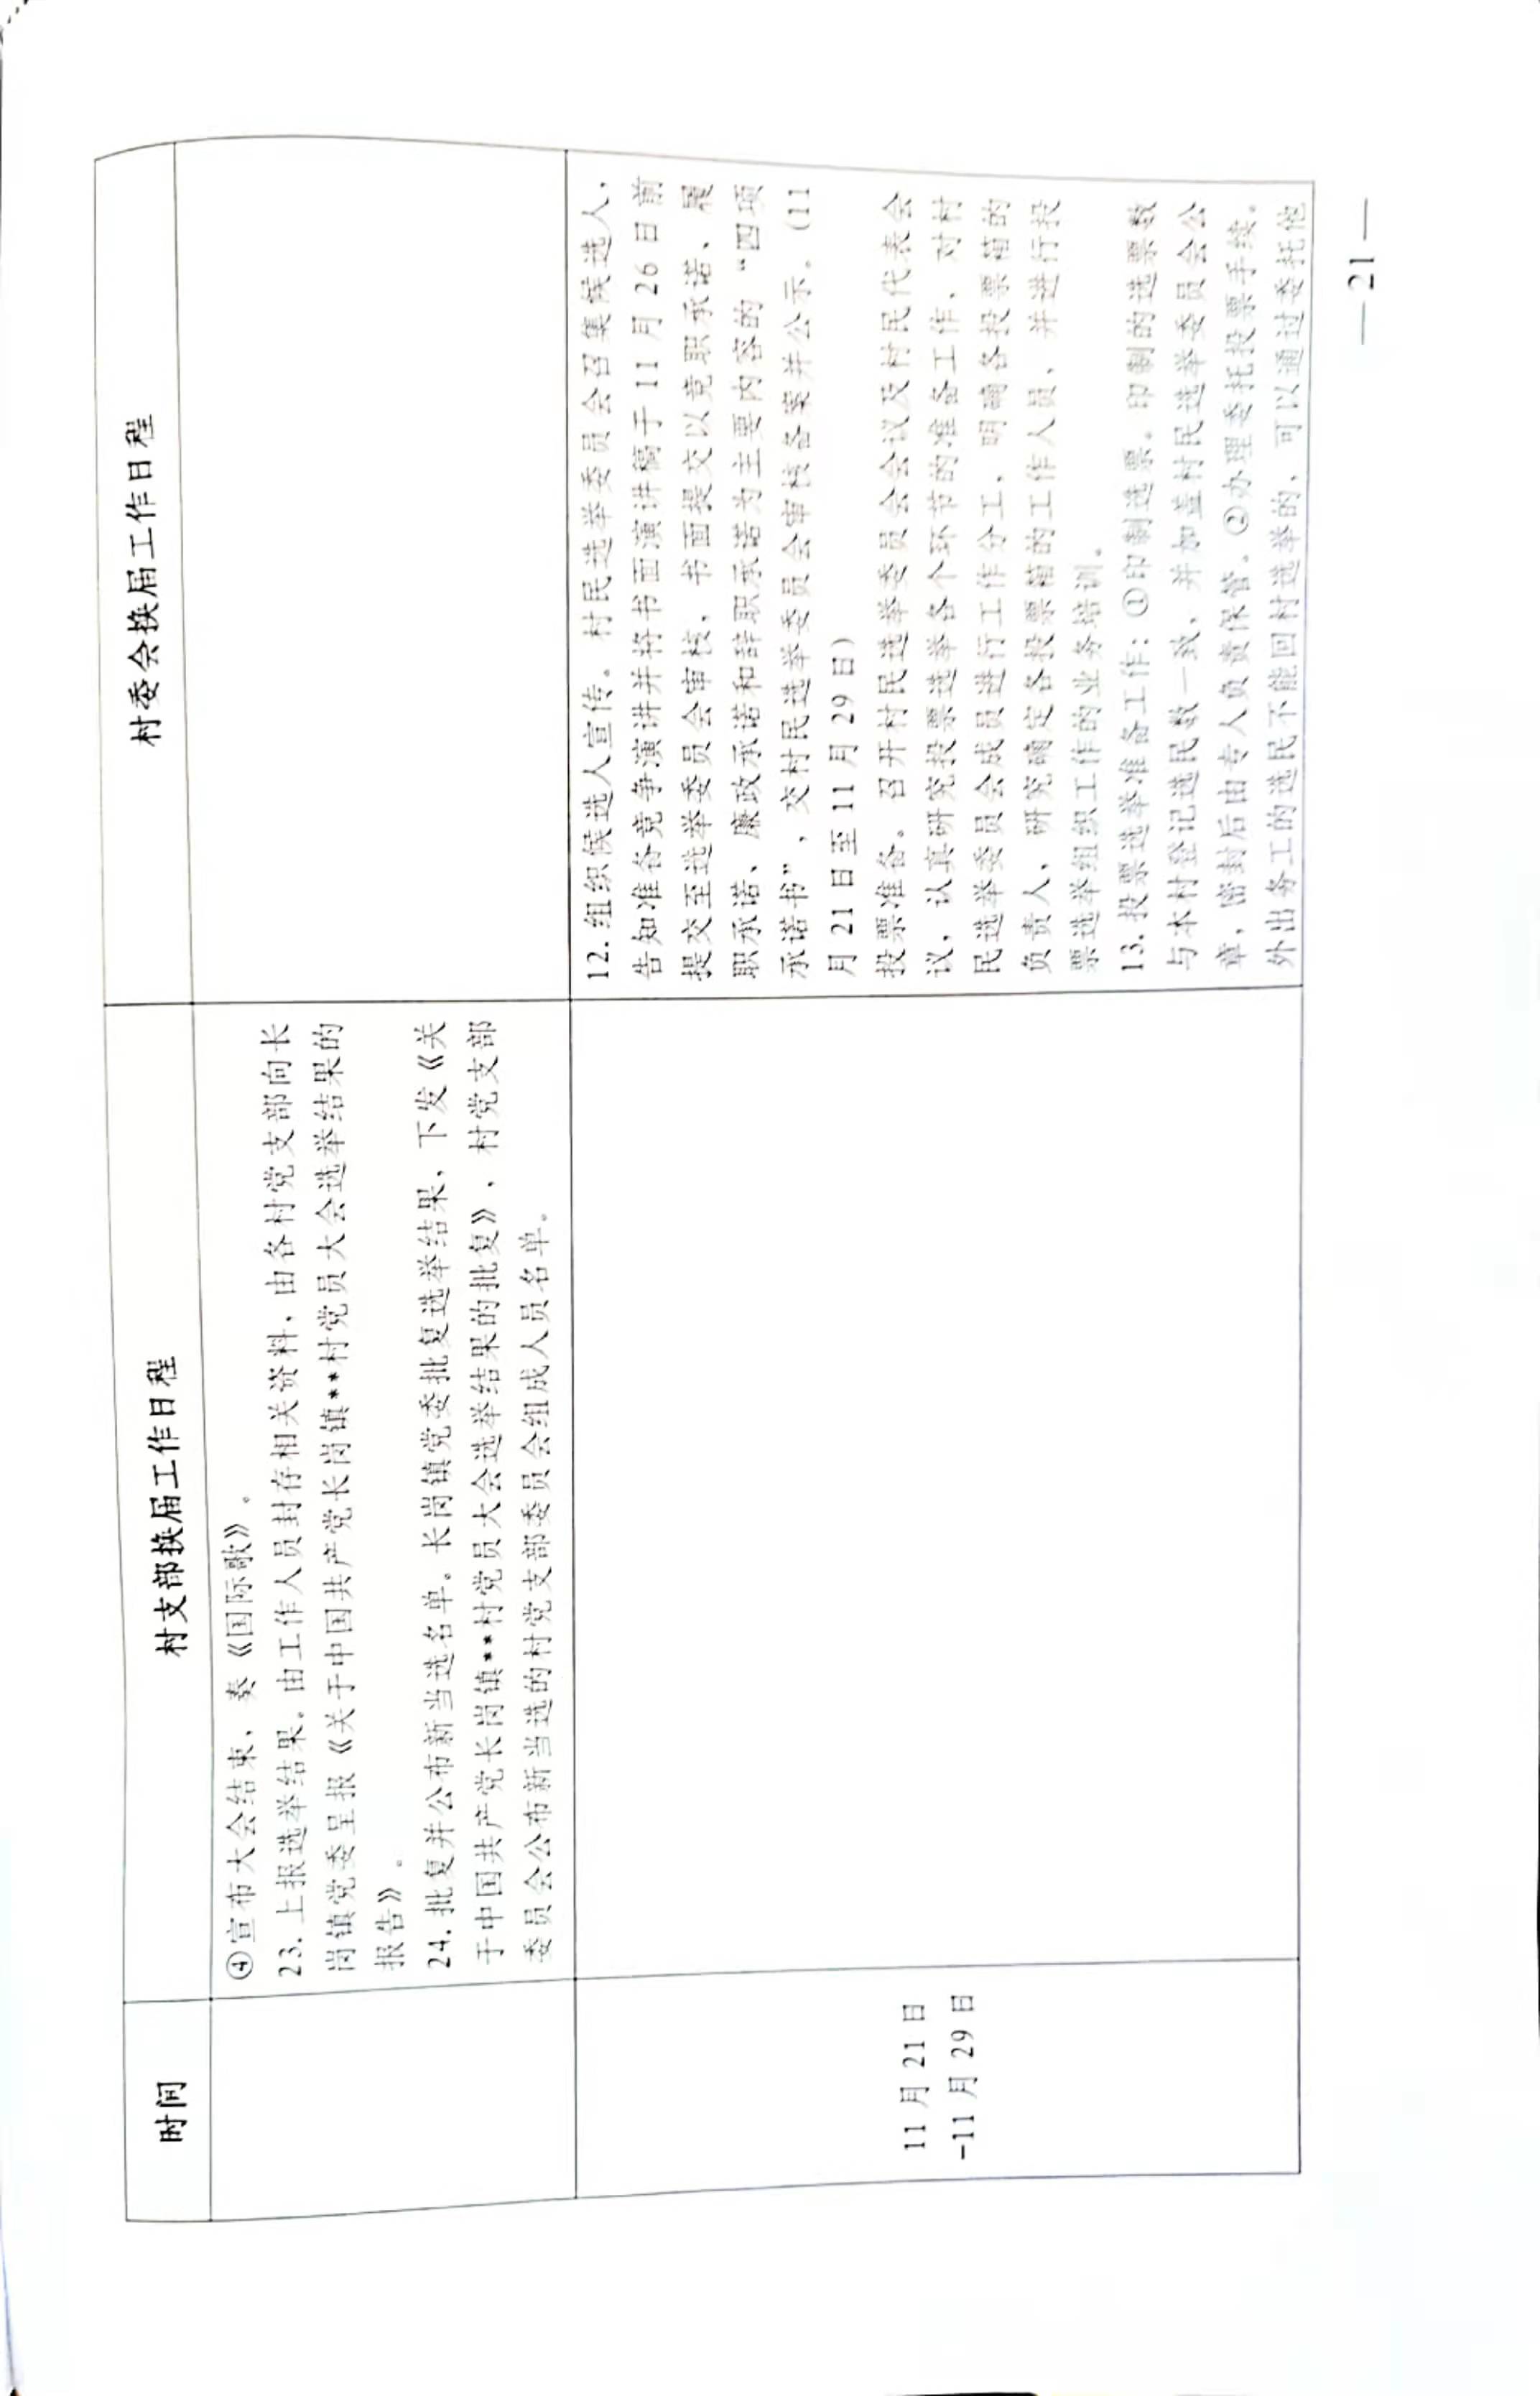 时间
村支部换届工作日程
村委会换届工作日程
④宣布大会结束，奏《国际歌》。
23.上报选举结果。由工作人员封存相关资料，由各村党支部向长
岗镇党委呈报《关于中国共产党长岗镇**村党员大会选举结果的
报告》。
24.批复并公布新当选名单。长岗镇党委批复选举结果，下发《关
于中国共产党长岗镇**村党员大会选举结果的批复》，村党支部
委员会公布新当选的村党支部委员会组成人员名单。
11月21日
-11月29日
12.组织候选人宣传。村民选举委员会召集候选人，
告知准备竞争演讲并将书面演讲稿于11月26日前
提交至选举委员会审核，书面提交以竞职承诺、履
职承诺、廉政承诺和辞职承诺为主要内容的“四项
承诺书”，交村民选举委员会审核备案并公示。(11
月21日至11月29日)
投票准备。召开村民选举委员会会议及村民代表会
议，认真研究投票选举各个环节的准备工作，对村
民选举委员会成员进行工作分工，明确各投票箱的
负责人，研究确定各投票箱的工作人员，并进行投
票选举组织工作的业务培训。
13.投票选举准备工作：①印制选票。印制的选票数
与本村登记选民数一致，并加盖村民选举委员会公
章，密封后由专人负责保管。②办理委托投票手续。
外出务工的选民不能回村选举的，可以通过委托他
—21—